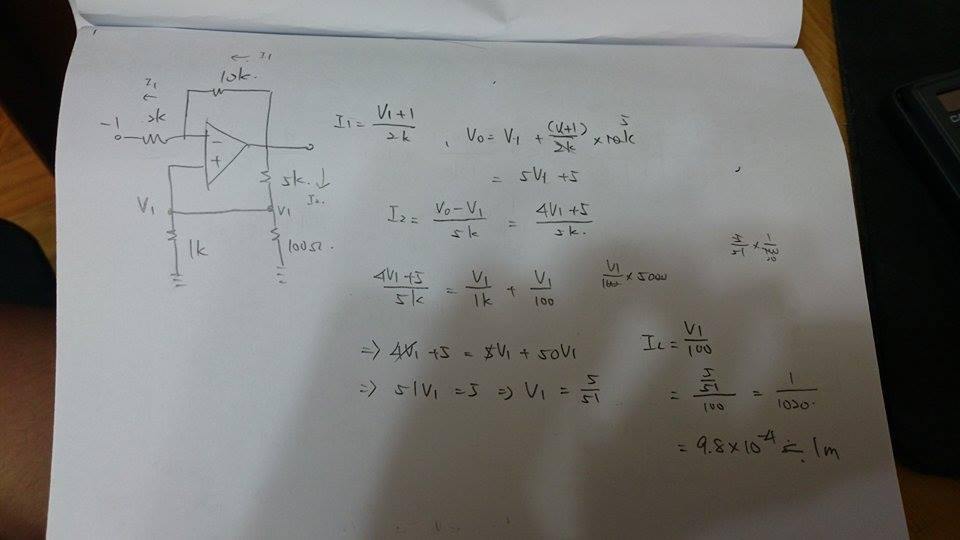 I1
10k.
I1
2k
-1
-
+
5k.
I2.
V1
V1
1k
100Ω.
I1 = (V1+1)/2k , V0 = V1 + (V1+1)/2k × 10k 5
= 5V1 + 5
I2 = (V0-V1)/5k = (4V1+5)/5k.
(4V1+5)/5k = V1/1k + V1/100
V1/100 × 5000
=> 4V1 + 5 = 5V1 + 50V1
=> 51V1 = 5 => V1 = 5/51
IL = V1/100
= (5/51)/100 = 1/1020.
= 9.8×10^-4 ≒ 1m